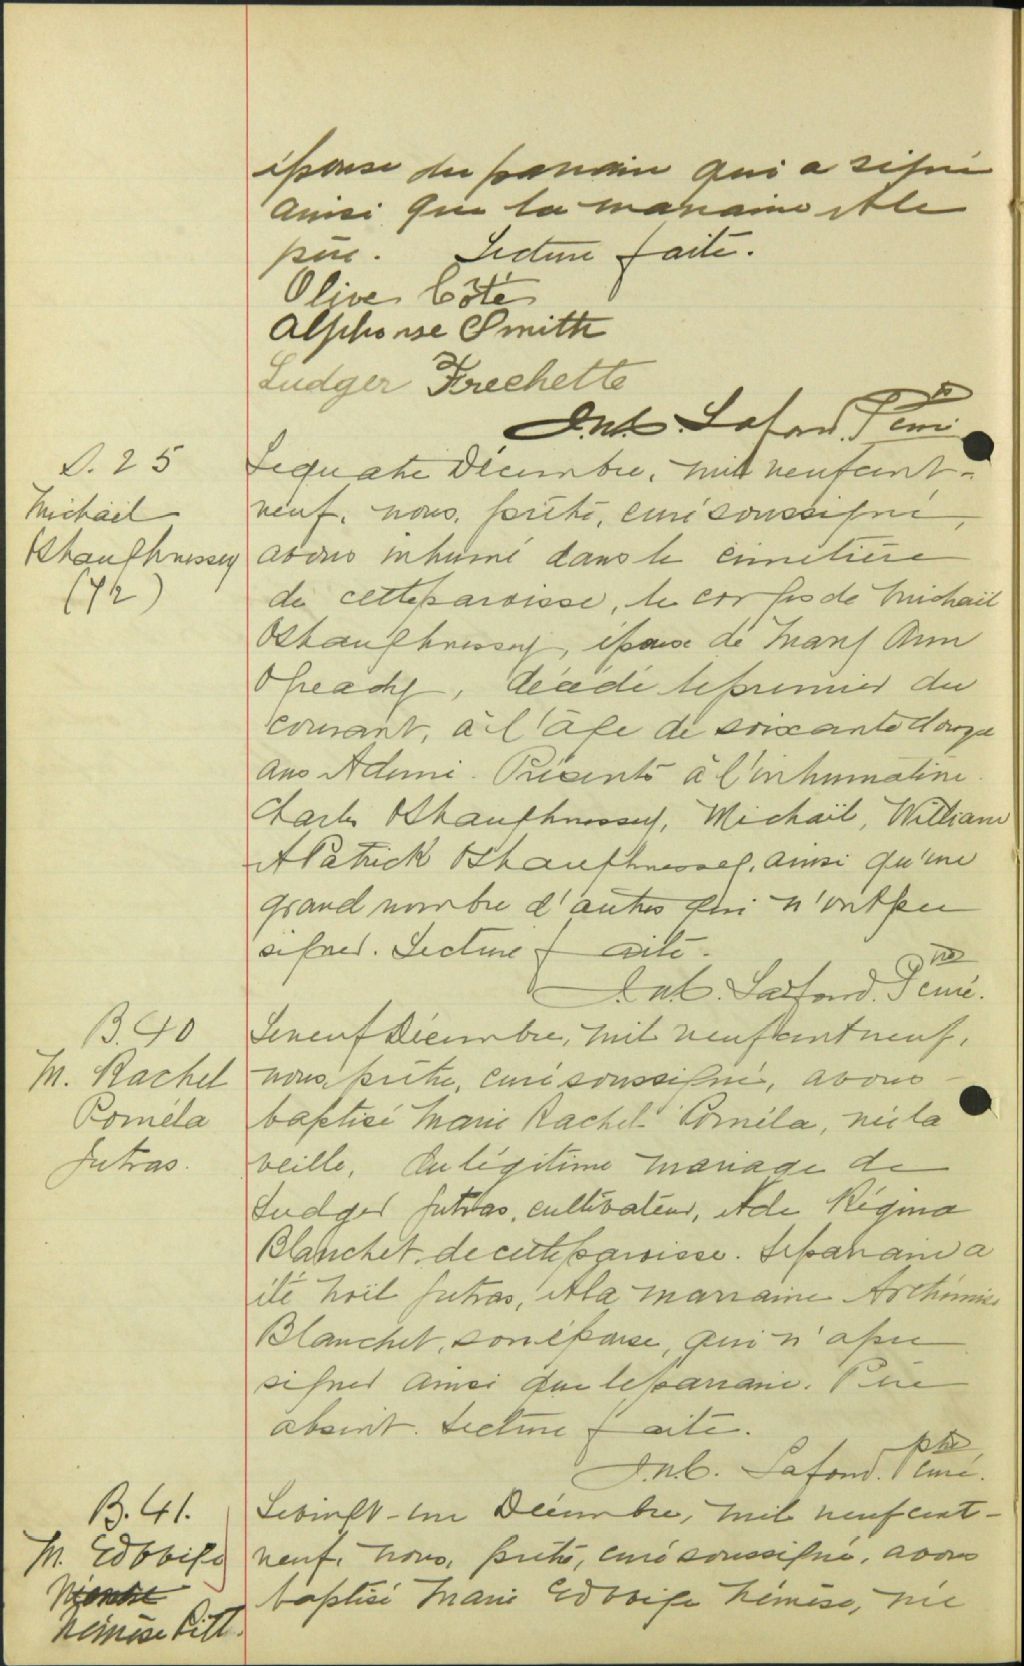 épouse du parrain qui a signé
ainsi que la marraine et le
père. Lecture faite.
Olive Côté
Alphonse Smith
Ludger Frechette
J.N.C. Lafond. Ptre curé
S. 25
Michaël
OShaughnessey
(72)
Le quatre Décembre, mil neuf cent-
neuf, nous, prêtre, curé soussigné,
avons inhumé dans le cimetière
de cette paroisse, le corps de Michaël
OShaughnessey, époux de Mary Ann
Ogready, décédé le premier du
courant, à l'âge de soixante douze
ans et demi. Présents à l'inhumation
Charles OShaughnessey, Michaël, William
et Patrick OShaughnessey, ainsi qu'un
grand nombre d'autres qui n'ont pu
signer. Lecture faite.
J.N.C. Lafond. Ptre curé.
B. 40
M. Rachel
Poméla
Jutras.
Le neuf Décembre, mil neuf cent neuf,
nous, prêtre, curé soussigné, avons
baptisé Marie Rachel Poméla, née la
veille, du légitime mariage de
Ludger Jutras, cultivateur, et de Régina
Blanchet de cette paroisse. Le parrain a
été Noël Jutras, et la marraine
Blanchet, son épouse, qui n'a pu
signer ainsi que le parrain. Père
absent. Lecture faite.
J.N.C. Lafond. ptre, curé.
B. 41.
M. Edwige
Némèse Pitt.
Le vingt-un Décembre, mil neuf cent-
neuf, nous, prêtre, curé soussigné, avons
baptisé Marie Edwige Némèse, née